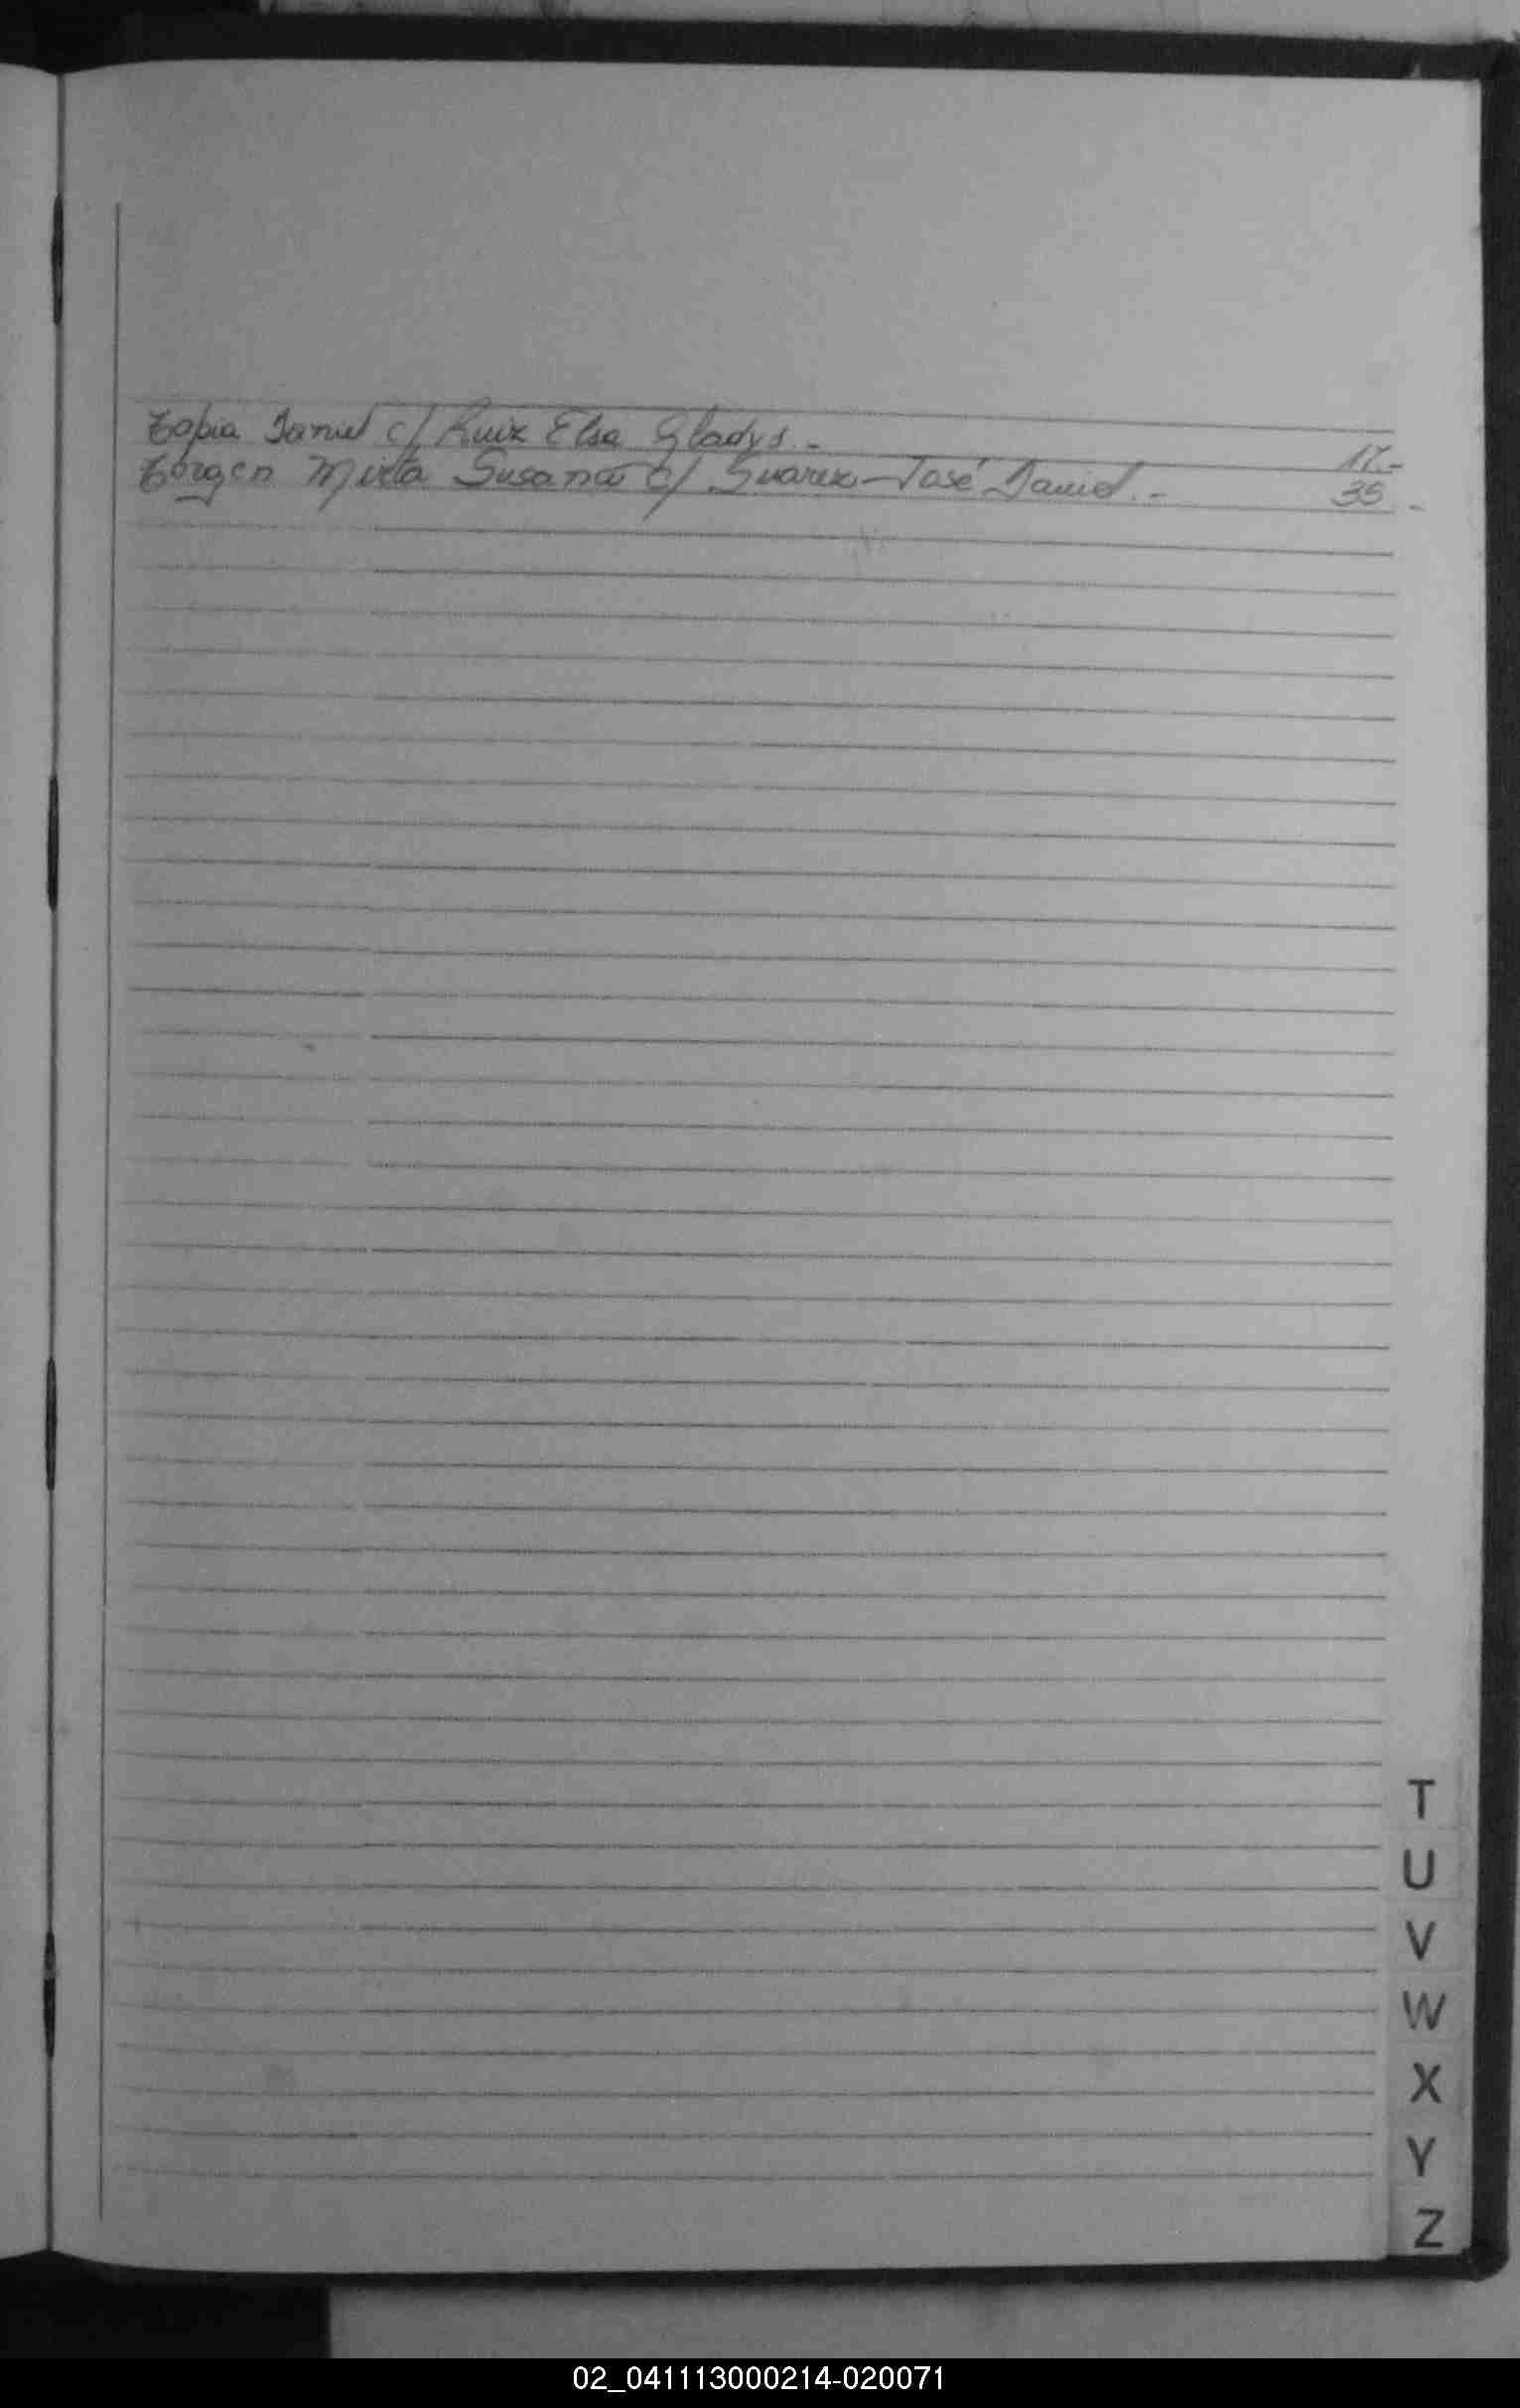 Tapia Daniel c/ Ruiz Elsa Gladys.-
17.-
Torgen Mirta Susana c/ Suarez-José Daniel.-
35.-
T
U
V
W
X
Y
Z
02_041113000214-020071